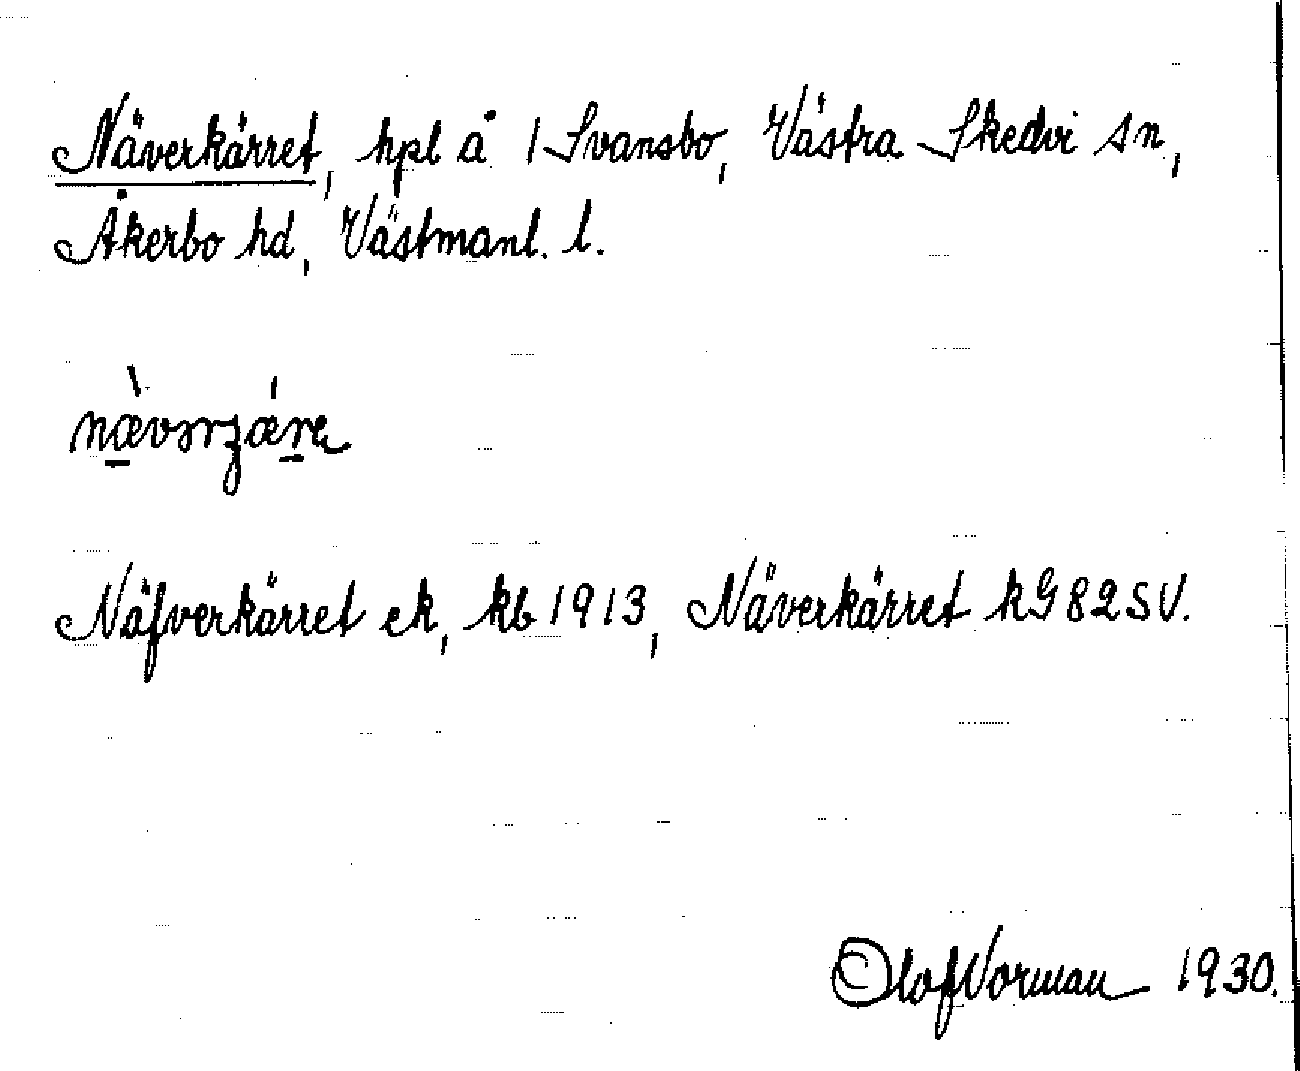 Näverkärret, hpl å 1 Svansbo, Västra Skedvi sn,
Åkerbo hd, Västmanl. l.
Näfverkärret ek, kb 1913, Näverkärret kG 82 SV.
Olof Norman 1930.